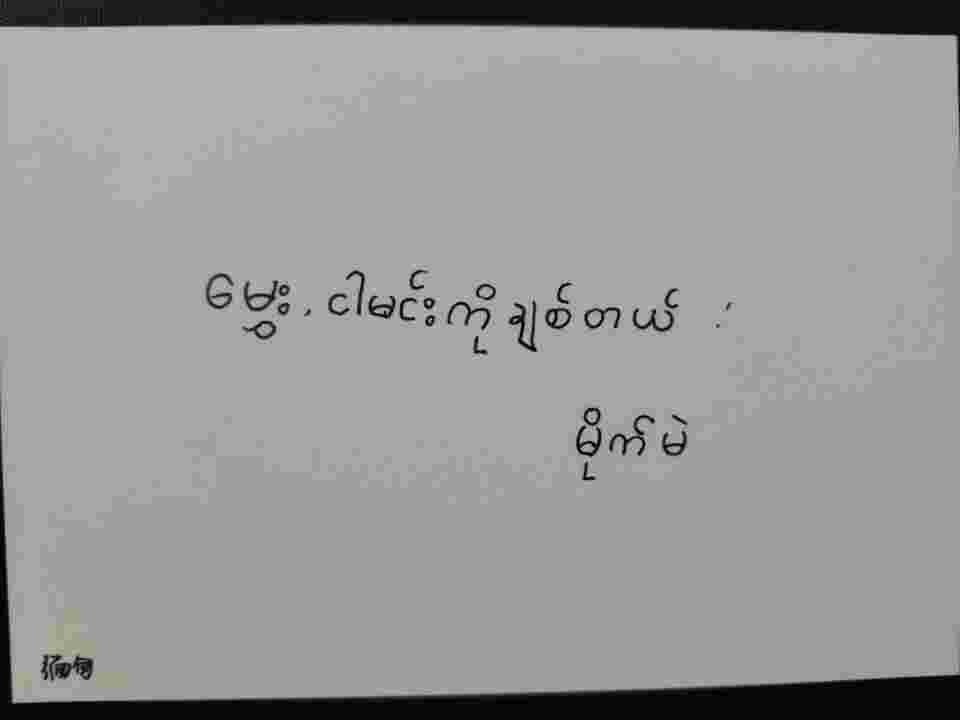 မွေး, ငါမင်းကိုချစ်တယ်
မိုက်မဲ
缅甸